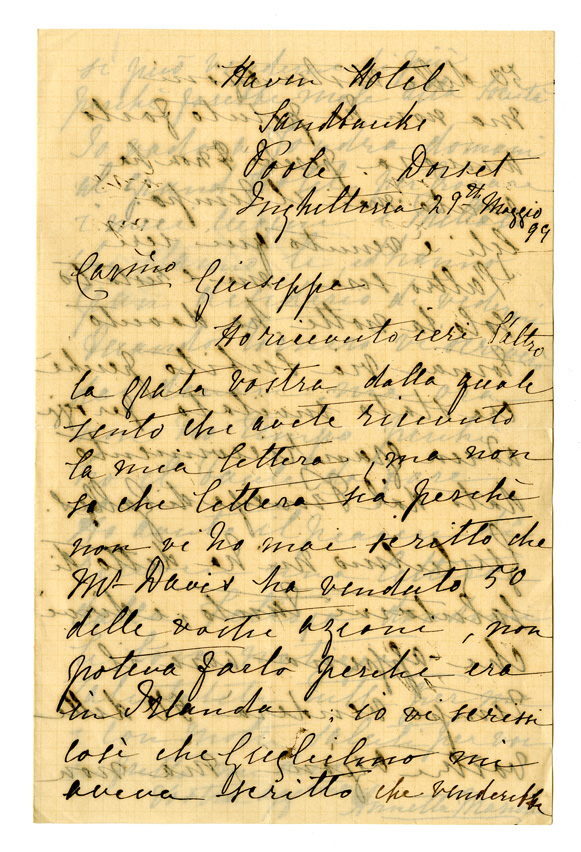 Haven Hotel
Sandbanks
Poole. Dorset
Inghilterra 29th Maggio
99
Carino Giuseppe
Ho ricevuto ieri l'altro
la grata vostra dalla quale
sento che avete ricevuto
la mia lettera, ma non
so che lettera sia perchè
non vi ho mai scritto che
Mr Davis ha venduto 50
delle vostre azioni, non
poteva farlo perchè era
in Irlanda; io vi scrissi
così che Guglielmo mi
aveva scritto che venderebbe